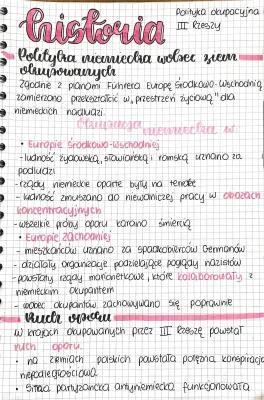 historia
Polityka okupacyjna
III Rzeszy
Polityka niemiecka wobec ziem
okupowanych
Zgodnie z planami Führera Europę Środkowo-Wschodnią
zamierzano przekształcić w „przestrzeń życiową" dla
niemieckich nadludzi.
okupacja niemiecka w:
• Europie Środkowo-Wschodniej
-ludność żydowską, słowiańską i romską uznano za
podludzi
-rządy niemieckie oparte były na terrorze
-ludność zmuszano do niewolniczej pracy w obozach
koncentracyjnych
-wszelkie próby oporu karano śmiercią
• Europie Zachodniej
- mieszkańców uznano za spadkobierców Germanów
- działały organizacje podzielające poglądy nazistów
-powstały rządy marionetkowe, które kolaborowały z
niemieckim okupantem
- wobec okupantów zachowywano się poprawnie
Ruch oporu
w krajach okupowanych przez III Rzeszę powstał
ruch oporu.
• na ziemiach polskich powstała potężna konspiracja
niepodległościowa
• Silna partyzancka antyniemiecka funkcjonowała